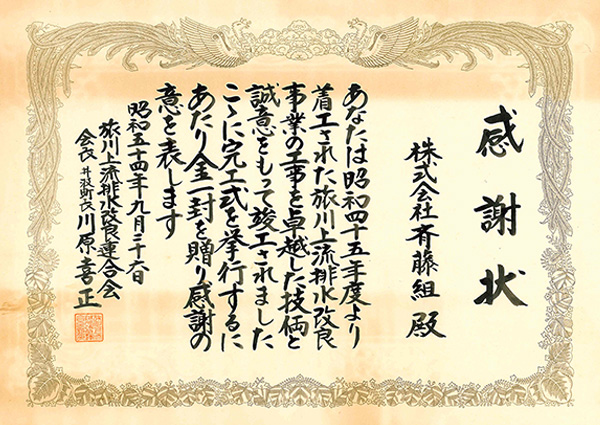 感謝状
株式会社斉藤組殿
あなたは昭和四十五年度より
着工された旅川上流排水改良
事業の工事を卓越した技倆と
誠意をもって竣工されました
こゝに完工式を挙行するに
あたり金一封を贈り感謝の
意を表します
昭和五十四年九月二十六日
旅川上流排水改良連合会
会長 井波町長 川原喜正